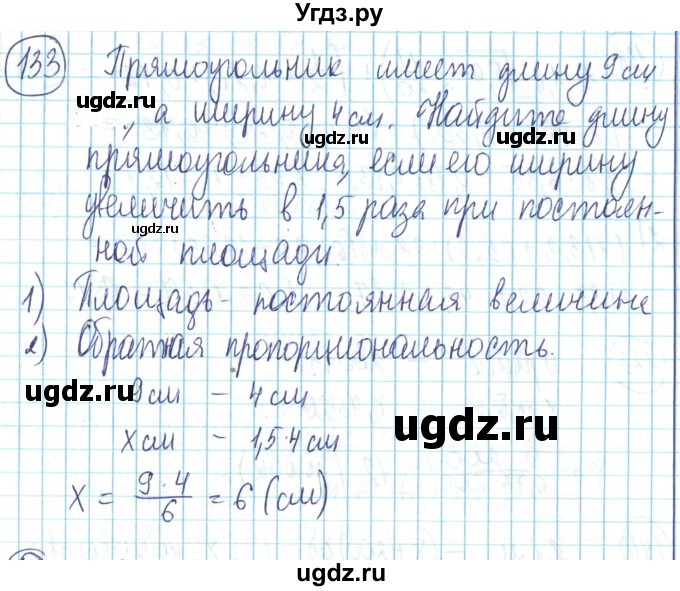 Угдз.ру
133 Прямоугольник имеет длину 9 см
, а ширину 4 см. Найдите длину
прямоугольника, если его ширину
увеличить в 1,5 раза при постоян-
ной площади.
1) Площадь - постоянная величина
2) Обратная пропорциональность.
9 см - 4 см
х см - 1,5·4 см
х = 9·4/6 = 6 (см)
ugdz.ru
ugdz.ru
ugdz.ru
ugdz.ru
ugdz.ru
ugdz.ru
ugdz.ru
ugdz.ru
ugdz.ru
ugdz.ru
ugdz.ru
ugdz.ru